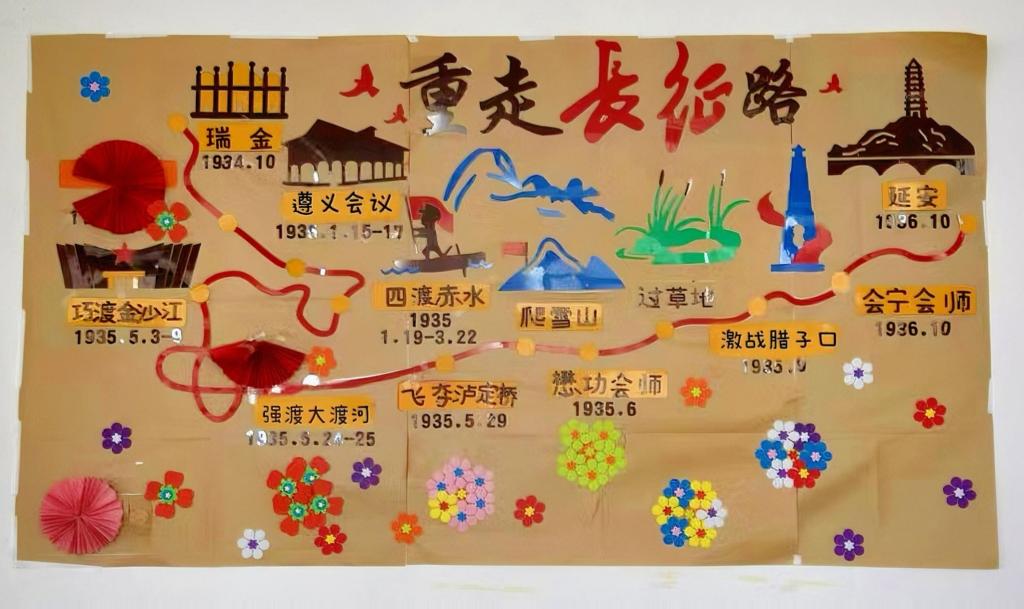 重走长征路
瑞金
1934.10
遵义会议
1935.1.15-17
四渡赤水
1935
1.19-3.22
巧渡金沙江
1935.5.3-9
强渡大渡河
1935.5.24-25
飞夺泸定桥
1935.5.29
爬雪山
懋功会师
1935.6
过草地
激战腊子口
1935.9
会宁会师
1936.10
延安
1936.10